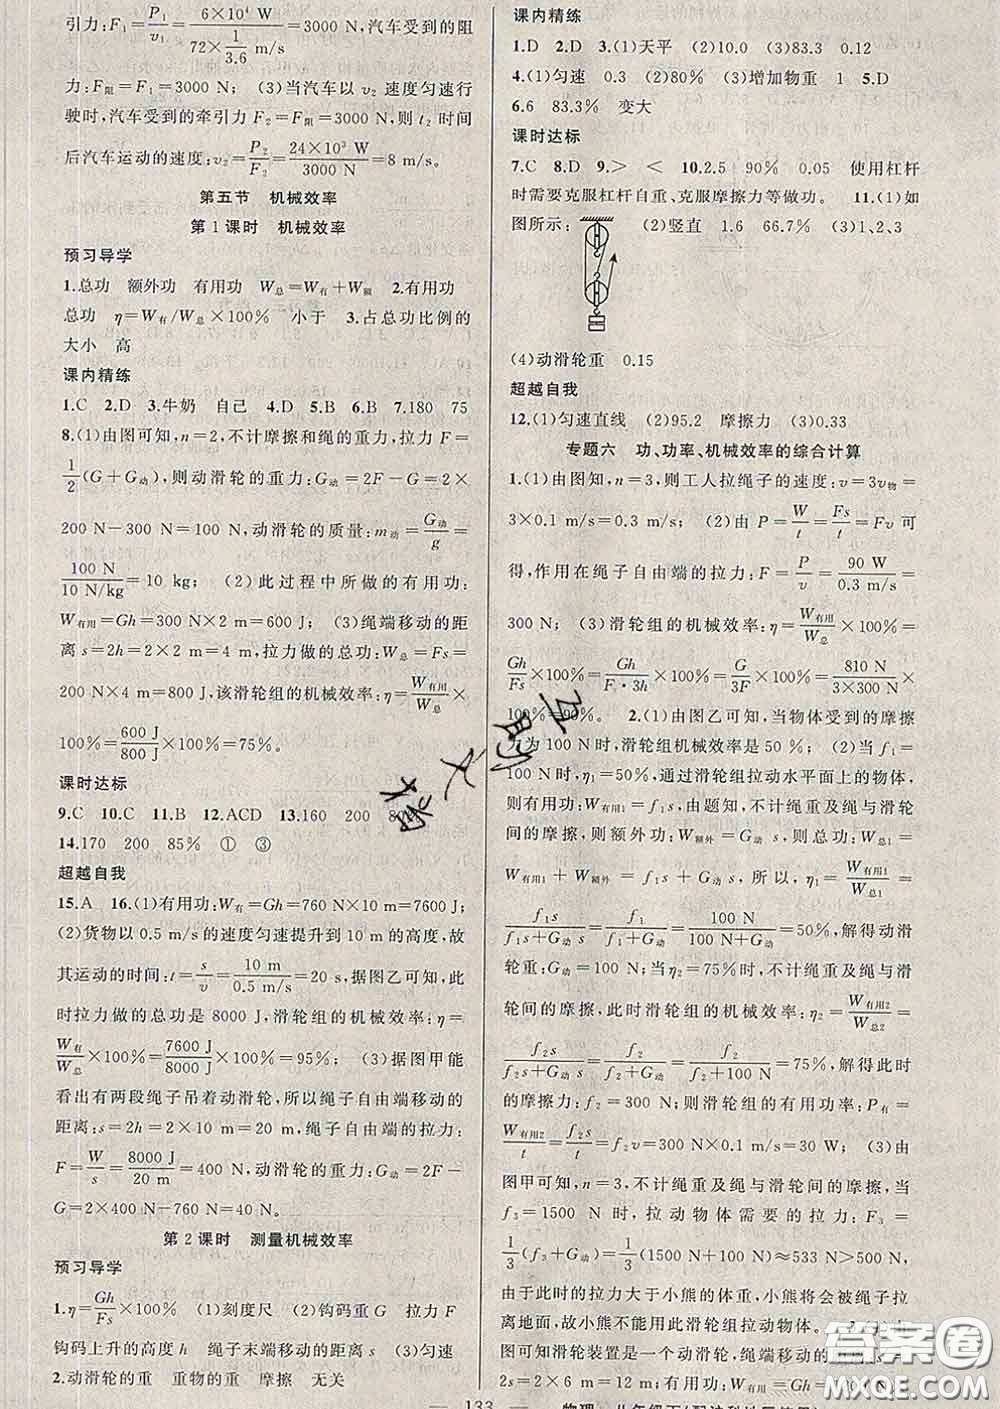 引力:F₁=P₁/v₁=6×10⁴ W/(72×1/3.6 m/s)=3000 N,汽车受到的阻
力:F阻=F₁=3000 N; (3)当汽车以 v₂ 速度匀速行
驶时,汽车受到的牵引力 F₂=F阻=3000 N,则 t₂ 时间
后汽车运动的速度:v₂=P₂/F₂=24×10³ W/3000 N=8 m/s。
第五节 机械效率
第1课时 机械效率
预习导学
1.总功 额外功 有用功 W总=W有+W额 2.有用功
总功 η=W有/W总×100% 小于 3.占总功比例的
大小 高
课内精练
1.C 2.D 3.牛奶 自己 4.D 5.B 6.B 7.180 75
8.(1)由图可知,n=2,不计摩擦和绳的重力,拉力 F=
1/2(G+G动),则动滑轮的重力:G动=2F-G=2×
200 N-300 N=100 N,动滑轮的质量:m动=G动/g=
100 N/10 N/kg=10 kg; (2)此过程中所做的有用功:
W有用=Gh=300 N×2 m=600 J; (3)绳端移动的距
离 s=2h=2×2 m=4 m,拉力做的总功:W总=Fs=
200 N×4 m=800 J,该滑轮组的机械效率:η=W有用/W总×
100%=600 J/800 J×100%=75%。
课时达标
9.C 10.C 11.B 12.ACD 13.160 200
14.170 200 85% ① ③
超越自我
15.A 16.(1)有用功:W有=Gh=760 N×10 m=7600 J;
(2)货物以 0.5 m/s的速度匀速提升到 10 m的高度,故
其运动的时间:t=s/v=10 m/0.5 m/s=20 s,据图乙可知,此
时拉力做的总功是 8000 J,滑轮组的机械效率:η=
W有/W总×100%=7600 J/8000 J×100%=95%; (3)据图甲能
看出有两段绳子吊着动滑轮,所以绳子自由端移动的
距离:s=2h=2×10 m=20 m,绳子自由端的拉力:
F=W/s=8000 J/20 m=400 N,动滑轮的重力:G动=2F-
G=2×400 N-760 N=40 N。
第2课时 测量机械效率
预习导学
1.η=Gh/Fs×100% (1)刻度尺 (2)钩码重G 拉力F
钩码上升的高度h 绳子末端移动的距离s (3)匀速
2.动滑轮的重 重物的重 摩擦 无关
课内精练
1.D 2.D 3.(1)天平 (2)10.0 (3)83.3 0.12
4.(1)匀速 0.3 (2)80% (3)增加物重 1 5.D
6.6 83.3% 变大
课时达标
7.C 8.D 9.> < 10.2.5 90% 0.05 使用杠杆
时需要克服杠杆自重、克服摩擦力等做功。 11.(1)如
图所示: (2)竖直 1.6 66.7% (3)1、2、3
(4)动滑轮重 0.15
超越自我
12.(1)匀速直线 (2)95.2 摩擦力 (3)0.33
专题六 功、功率、机械效率的综合计算
1.(1)由图知,n=3,则工人拉绳子的速度:v=3v物=
3×0.1 m/s=0.3 m/s; (2)由 P=W/t=Fs/t=Fv 可
得,作用在绳子自由端的拉力:F=P/v=90 W/0.3 m/s=
300 N; (3)滑轮组的机械效率:η=W有用/W总×100%=
Gh/Fs×100%=Gh/F·3h×100%=G/3F×100%=810 N/3×300 N×
100%=90%。 2.(1)由图乙可知,当物体受到的摩擦
力为100 N时,滑轮组机械效率是50 %; (2)当 f₁=
100 N时,η₁=50%,通过滑轮组拉动水平面上的物体,
则有用功:W有用1=f₁s,由题知,不计绳重及绳与滑轮
间的摩擦,则额外功:W额外=G动 s,则总功:W总1=
W有用1+W额外=f₁s+G动 s,所以,η₁=W有用1/W总1=
f₁s/(f₁s+G动 s)=f₁/(f₁+G动)=100 N/(100 N+G动)=50%,解得动滑
轮重:G动=100 N;当η₂=75%时,不计绳重及绳与滑
轮间的摩擦,此时滑轮组的机械效率:η₂=W有用2/W总2=
f₂s/(f₂s+G动 s)=f₂/(f₂+100 N)=75%,解得此时
的摩擦力:f₂=300 N;则滑轮组的有用功率:P有=
W有用2/t=f₂s/t=f₂v=300 N×0.1 m/s=30 W; (3)由
图甲可知,n=3,不计绳重及绳与滑轮间的摩擦,当
f₃=1500 N时,拉动物体需要的拉力:F₃=
1/3(f₃+G动)=1/3(1500 N+100 N)≈533 N>500 N,
由于此时的拉力大于小熊的体重,小熊将会被绳子拉
离地面,故小熊不能用此滑轮组拉动物体。
图可知滑轮装置是一个动滑轮,绳端移动的
2s=2×6 m=12 m;有用功:
133
答案圈
MXQE.COM